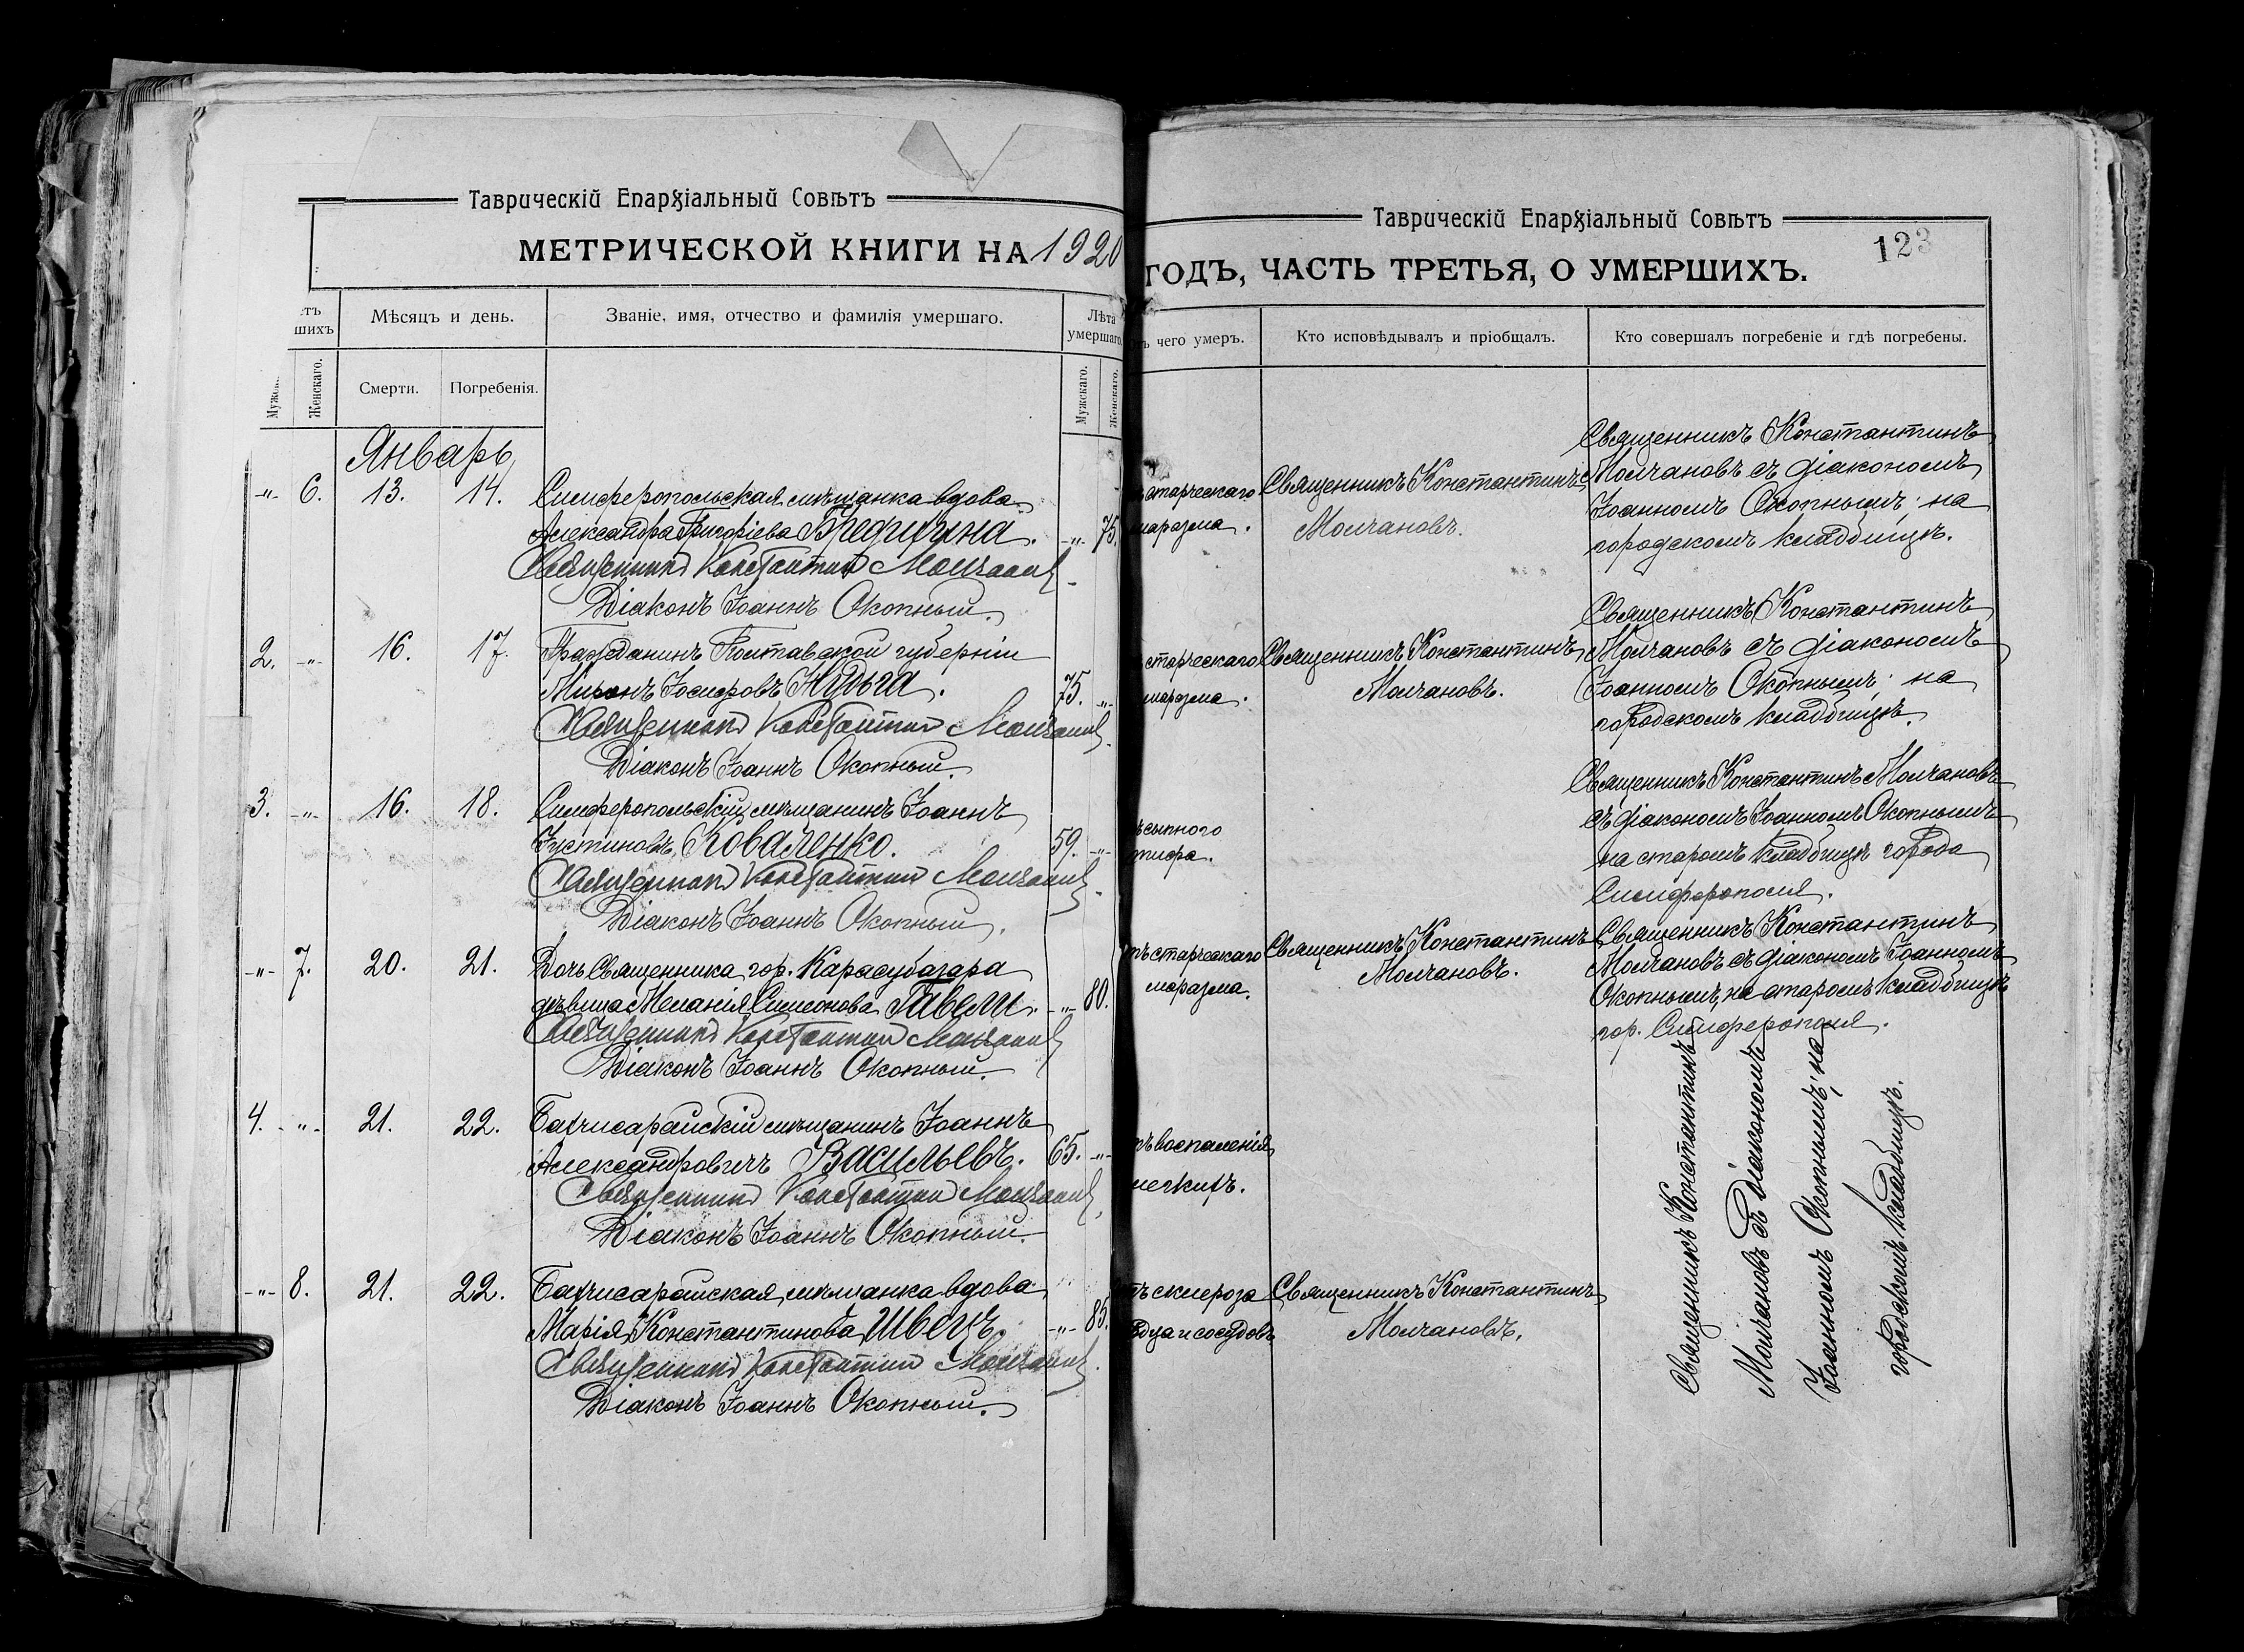 Таврическій Епархіальный Совѣтъ
МЕТРИЧЕСКОЙ КНИГИ НА 1920
шихъ
Мѣсяцъ и день.
Званіе, имя, отчество и фамилія умершаго.
Лѣта умершаго.
Женскаго.
Смерти.
Погребенія.
Мужскаго.
Женскаго.
Январь
-"- 6. 13. 14. Симферопольская мѣщанка вдова
Александра Григоріева Бредихина. -"- 75.
Священникъ Константинъ Молчановъ
Діаконъ Іоаннъ Окопный.
2. -"- 16. 17. Гражданинъ Полтавской губерніи
Миронъ Іосифовъ Нудьга. 75. -"-
Священникъ Константинъ Молчановъ.
Діаконъ Іоаннъ Окопный.
3. -"- 16. 18. Симферопольскій мѣщанинъ Іоаннъ
Іустиновъ Коваленко. 59. -"-
Священникъ Константинъ Молчановъ.
Діаконъ Іоаннъ Окопный.
-"- 7. 20. 21. Дочь Священника гор. Карасубазара
дѣвица Меланія Симеонова Гавели. -"- 80.
Священникъ Константинъ Молчановъ
Діаконъ Іоаннъ Окопный.
4. -"- 21. 22. Бахчисарайскій мѣщанинъ Іоаннъ
Александровичъ Васильевъ. 65. -"-
Священникъ Константинъ Молчановъ.
Діаконъ Іоаннъ Окопный.
-"- 8. 21. 22. Бахчисарайская мѣщанка вдова
Марія Константинова Швецъ. -"- 85.
Священникъ Константинъ Молчановъ.
Діаконъ Іоаннъ Окопный.
Таврическій Епархіальный Совѣтъ
123
ГОДЪ, ЧАСТЬ ТРЕТЬЯ, О УМЕРШИХЪ.
чего умеръ.
Кто исповѣдывалъ и пріобщалъ.
Кто совершалъ погребеніе и гдѣ погребены.
старческаго
маразма.
Священникъ Константинъ
Молчановъ.
Священникъ Константинъ
Молчановъ съ діакономъ
Іоанномъ Окопнымъ; на
городскомъ кладбищѣ.
старческаго
маразма.
Священникъ Константинъ
Молчановъ.
Священникъ Константинъ
Молчановъ съ діакономъ
Іоанномъ Окопнымъ; на
городскомъ кладбищѣ.
сыпного
тифа.
Священникъ Константинъ Молчановъ
съ діакономъ Іоанномъ Окопнымъ
на старомъ кладбищѣ города
Симферополя.
старческаго
маразма.
Священникъ Константинъ
Молчановъ.
Священникъ Константинъ
Молчановъ съ діакономъ Іоанномъ
Окопнымъ, на старомъ кладбищѣ
гор. Симферополя.
воспаленія
легкихъ.
склероза
сосудовъ
Священникъ Константинъ
Молчановъ.
Священникъ Константинъ
Молчановъ съ Діакономъ
Іоанномъ Окопнымъ; на
городскомъ кладбищѣ.